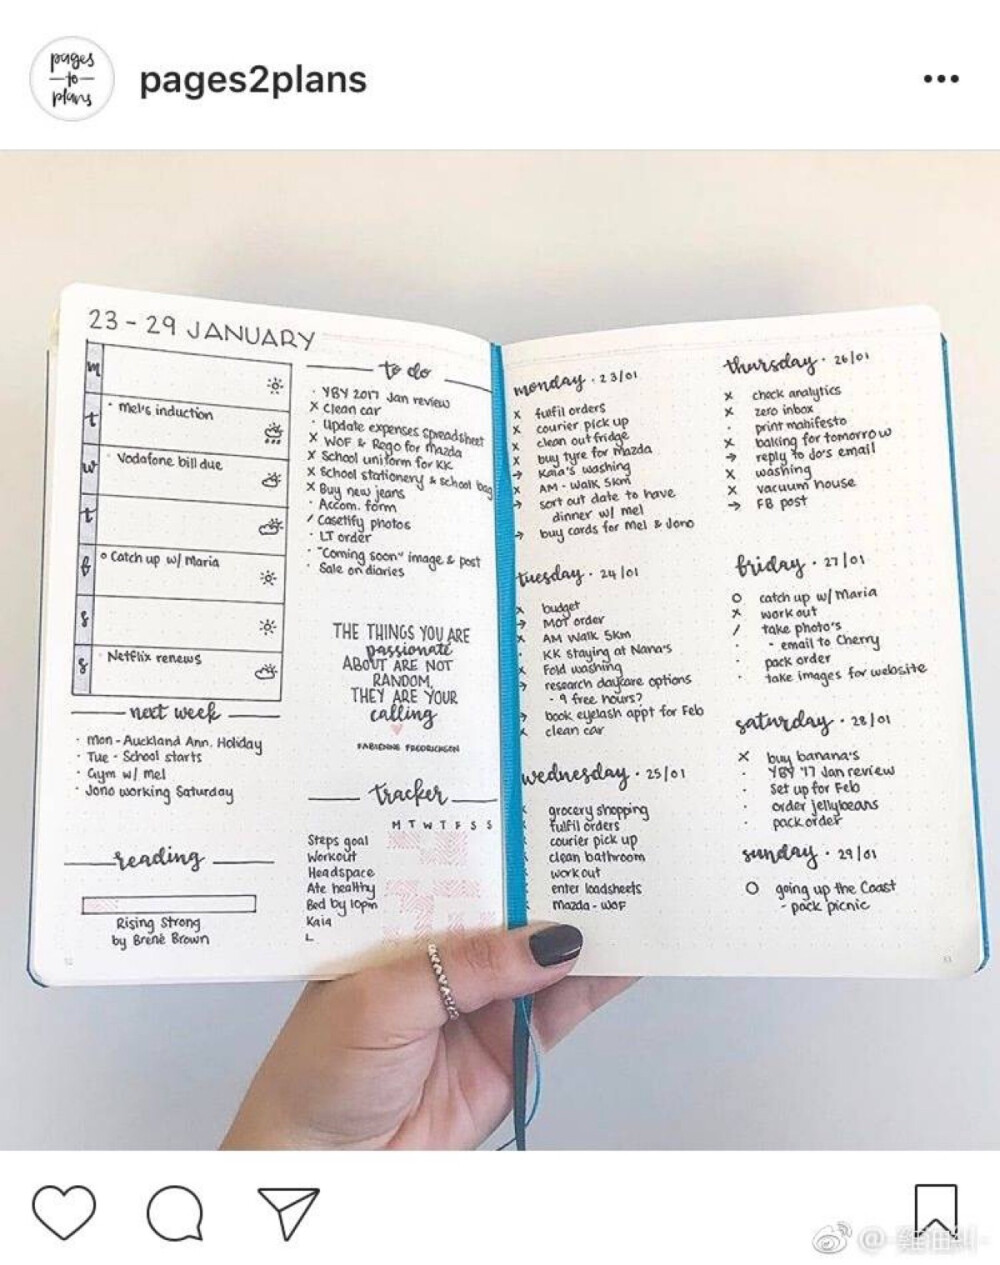 pages
to
plans
pages2plans
23 - 29 JANUARY
m
t
· Mel's induction
w
· Vodafone bill due
t
f
o Catch up w/ Maria
s
s
· Netflix renews
next week
· Mon - Auckland Ann. Holiday
· Tue - School starts
· Gym w/ Mel
· Jono working Saturday
reading
Rising Strong
by Brené Brown
to do
· YBY 2017 Jan review
x Clean car
· Update expenses spreadsheet
x WOF & Rego for Mazda
x School uniform for KK
x School stationery & school bag
x Buy new jeans
· Accom. form
/ Casetify photos
· LT order
· "Coming soon" image & post
· Sale on diaries
THE THINGS YOU ARE
passionate
ABOUT ARE NOT
RANDOM,
THEY ARE YOUR
calling
FABIENNE FREDRICKSON
tracker
M T W T F S S
Steps goal
Workout
Headspace
Ate healthy
Bed by 10pm
Kaia
L
monday · 23/01
x fulfil orders
x courier pick up
x clean out fridge
x buy tyre for Mazda
→ Kaia's washing
x AM - Walk 5km
→ sort out date to have
dinner w/ mel
→ buy cards for Mel & Jono
tuesday · 24/01
x budget
→ MOT order
x AM Walk 5km
· KK staying at Nana's
x Fold washing
→ research daycare options
- 9 free hours?
→ book eyelash appt for Feb
x clean car
wednesday · 25/01
grocery shopping
fulfil orders
courier pick up
clean bathroom
work out
enter loadsheets
Mazda - WOF
thursday · 26/01
x check analytics
x zero inbox
· print manifesto
x baking for tomorrow
→ reply to Jo's email
x washing
x vacuum house
→ FB post
friday · 27/01
o catch up w/ Maria
x work out
/ take photo's
- email to Cherry
· pack order
· take images for website
saturday · 28/01
x buy banana's
· YBY '17 Jan review
· set up for Feb
· order jellybeans
· pack order
sunday · 29/01
o going up the Coast
- pack picnic